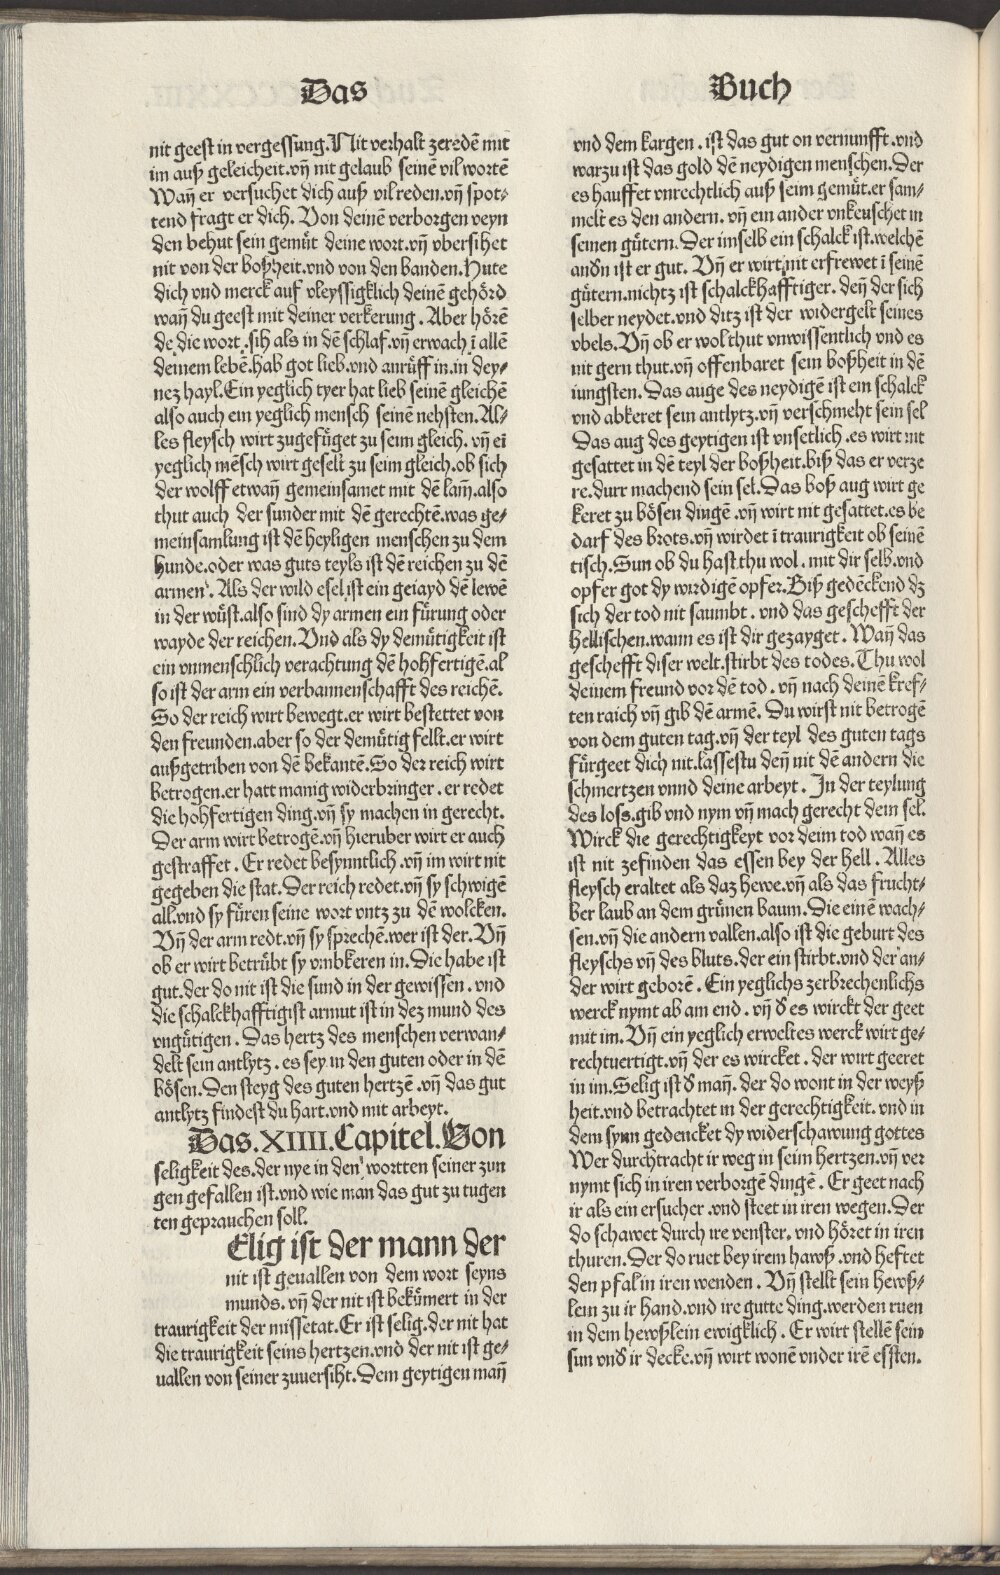 Das
Buch
nit geest in vergessung. Nit verhalt zeredē mit
im auß geleicheit. vñ nit gelaub seinē vil wortē
Wañ er versuchet dich auß vil reden. vñ spot-
tend fragt er dich. Von deinē verborgen veyn
den behut sein gemuͤt deine wort. vñ vbersihet
nit von der boßheit. vnd von den banden. Hute
dich vnd merck auf vleyssigklich deinē gehoͤrd
wañ du geest mit deiner verkerung. Aber hoͤrē
de die wort. sih als in dē schlaf. vñ erwach ī allē
deinem lebē. hab got lieb. vnd anruͤff in. in dey-
nez hayl. Ein yeglich tyer hat lieb seinē gleichē
also auch ein yeglich mensch seinē nehsten. Al-
les fleysch wirt zugefuͤget zu seim gleich. vñ ei
yeglich mēsch wirt geselt zu seim gleich. ob sich
der wolff etwañ gemeinsamet mit dē lam̄. also
thut auch der sunder mit dē gerechtē. was ge-
meinsamlung ist dē heyligen menschen zu dem
hunde. oder was guts teyls ist dē reichen zu dē
armen. Als der wild esel ist ein geiayd dē lewē
in der wuͤst. also sind dy armen ein fuͤrung oder
wayde der reichen. Vnd als dy demuͤtigkeit ist
ein vnmenschlich verachtung dē hohfertigē. al
so ist der arm ein verbannenschafft des reichē.
So der reich wirt bewegt. er wirt bestettet von
den freunden. aber so der demuͤtig fellt. er wirt
außgetriben von dē bekantē. So der reich wirt
betrogen. er hatt manig widerbringer. er redet
die hohfertigen ding. vñ sy machen in gerecht.
Der arm wirt betrogē. vñ hieruber wirt er auch
gestraffet. Er redet besynntlich. vñ im wirt nit
gegeben die stat. Der reich redet. vñ sy schwigē
all. vnd sy fuͤren seine wort vntz zu dē wolcken.
Vñ der arm redt. vñ sy sprechē. wer ist der. Vñ
ob er wirt betruͤbt sy vmbkeren in. Die habe ist
gut. der do nit ist die sund in der gewissen. vnd
die schalckhafftigist armut ist in dez mund des
vnguͤtigen. Das hertz des menschen verwan-
delt sein antlytz. es sey in den guten oder in dē
boͤsen. Den steyg des guten hertzē. vñ das gut
antlytz findest du hart. vnd mit arbeyt.
Das. XIIII. Capitel. Von
seligkeit des. der nye in den wortten seiner zun
gen gefallen ist. vnd wie man das gut zu tugen
ten geprauchen soll.
Elig ist der mann der
nit ist geuallen von dem wort seyns
munds. vñ der nit ist bekuͤmert in der
traurigkeit der missetat. Er ist selig. der nit hat
die traurigkeit seins hertzen. vnd der nit ist ge-
uallen von seiner zuuersiht. Dem geytigen mañ
vnd dem kargen. ist das gut on vernunfft. vnd
warzu ist das gold dē neydigen menschen. Der
es hauffet vnrechtlich auß seim gemuͤt. er sam-
melt es den andern. vñ ein ander vnkeuschet in
seinen guͤtern. Der im selb ein schalck ist. welchē
andn ist er gut. Vñ er wirt nit erfrewet ī seinē
guͤtern. nichtz ist schalckhafftiger. deñ der sich
selber neydet. vnd ditz ist der widergelt seines
vbels. Vñ ob er wol thut vnwissentlich vnd es
nit gern thut. vñ offenbaret sein boßheit in dē
iungsten. Das auge des neydigē ist ein schalck
vnd abkeret sein antlytz. vñ verschmeht sein sel
Das aug des geytigen ist vnsetlich. es wirt nit
gesattet in dē teyl der boßheit. biß das er verze
re. durr machend sein sel. Das boß aug wirt ge
keret zu boͤsen dingē. vñ wirt nit gesattet. es be
darf des brots. vñ wirdet ī traurigkeit ob seinē
tisch. Sun ob du hast. thu wol. mit dir selb. vnd
opfer got dy wirdigē opfer. Biß gedēckend dz
sich der tod nit saumbt. vnd das gescheft der
hellischen. wann es ist dir gezayget. Wañ das
geschefft diser welt. stirbt des todes. Thu wol
deinem freund vor dē tod. vñ nach deinē kref-
ten raich vñ gib dē armē. Du wirst nit betrogē
von dem guten tag. vñ der teyl des guten tags
fuͤrgeet dich nit. lassestu deñ nit dē andern die
schmertzen vnnd deine arbeyt. In der teylung
des loss. gib vnd nym vñ mach gerecht dein sel.
Wirck die gerechtigkeyt vor deim tod wañ es
ist nit zefinden das essen bey der hell. Alles
fleysch eraltet als daz hewe. vñ als das frucht-
ber laub an dem gruͤnen baum. Die einē wach-
sen. vñ die andern vallen. also ist die geburt des
fleyschs vñ des bluts. der ein stirbt. vnd der an-
der wirt geborē. Ein yeglichs zerbrechenlichs
werck nymt ab am end. vñ d es wirckt der geet
mit im. Vñ ein yeglich erweltes werck wirt ge-
rechtuertigt. vñ der es wircket. der wirt geeret
in im. Selig ist d mañ. der do wont in der weyß
heit. vnd betrachtet in der gerechtigkeit. vnd in
dem synn gedencket dy widerschawung gottes
Wer durchtracht ir weg in seim hertzen. vñ ver
nymt sich in iren verborgē dingē. Er geet nach
ir als ein ersucher. vnd steet in iren wegen. Der
do schawet durch ire venster. vnd hoͤret in iren
thuren. Der do ruet bey irem hawß. vnd heftet
den pfal in iren wenden. Vñ stellt sein hewß-
lein zu ir hand. vnd ire gutte ding. werden ruen
in dem hewßlein ewigklich. Er wirt stellē sein
sun vnd ir decke. vñ wirt wonē vnder irē essten.